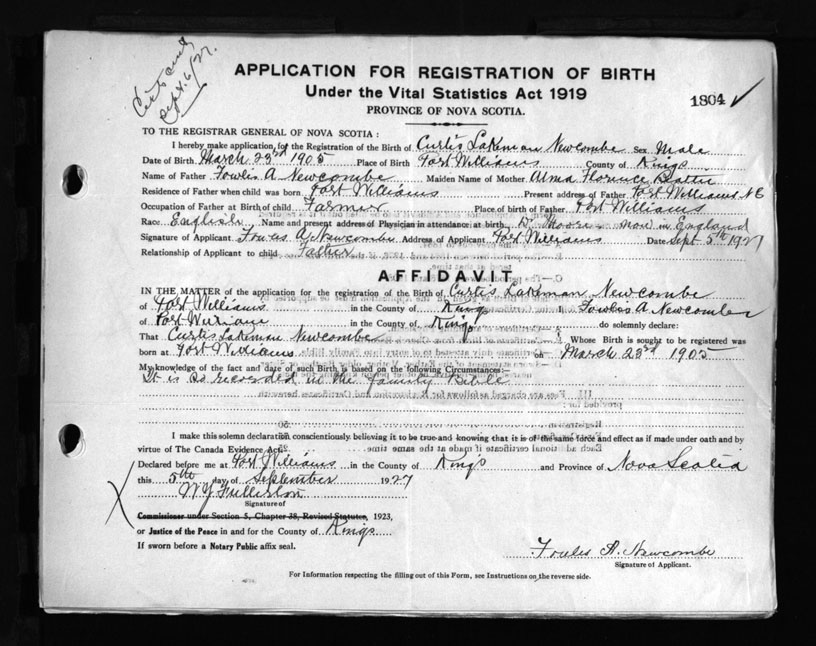 Cert sent
Sept. 6/27.
APPLICATION FOR REGISTRATION OF BIRTH
Under the Vital Statistics Act 1919
1804 ✓
PROVINCE OF NOVA SCOTIA.
TO THE REGISTRAR GENERAL OF NOVA SCOTIA:
I hereby make application for the Registration of the Birth of Curtis Lakeman Newcombe Sex Male
Date of Birth March 23rd 1905 Place of Birth Port Williams County of Kings
Name of Father Fowlis A Newcombe Maiden Name of Mother Alma Florence
Residence of Father when child was born Port Williams Present address of Father Port Williams
Occupation of Father at Birth of child Farmer Place of birth of Father Port Williams
Race English Name and present address of Physician in attendance at birth Dr Moore now in England
Signature of Applicant Fowles A. Newcombe Address of Applicant Port Williams Date Sept 5th 1927
Relationship of Applicant to child Father
AFFIDAVIT
IN THE MATTER of the application for the registration of the Birth of Curtis Lakeman Newcombe
of Port Williams in the County of Kings I Fowlis A Newcombe
of Port Williams in the County of Kings do solemnly declare:
That Curtis Lakeman Newcombe Whose Birth is sought to be registered was
born at Port Williams on March 23rd 1905
My knowledge of the fact and date of such Birth is based on the following Circumstances:—
It is so recorded in the family Bible
I make this solemn declaration conscientiously believing it to be true and knowing that it is of the same force and effect as if made under oath and by
virtue of The Canada Evidence Act.
Declared before me at Port Williams in the County of Kings and Province of Nova Scotia
this 5th day of September 1927
Signature of
Commissioner under Section 5, Chapter 38, Revised Statutes, 1923,
or Justice of the Peace in and for the County of Kings
If sworn before a Notary Public affix seal.
Fowles A. Newcombe
Signature of Applicant.
For Information respecting the filling out of this Form, see Instructions on the reverse side.